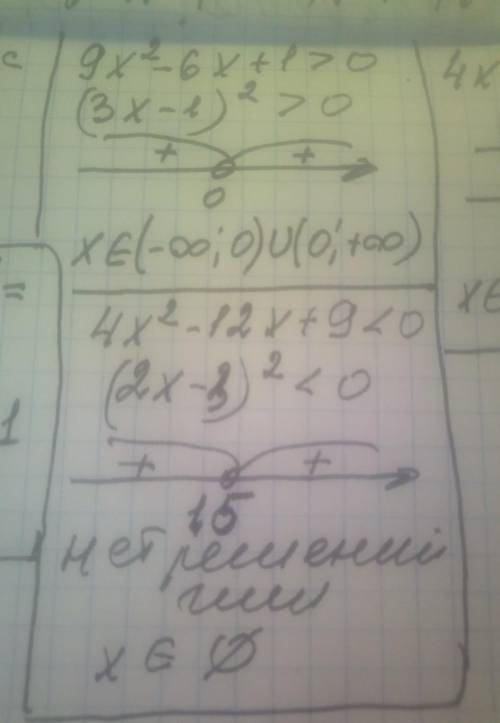 c
9x² - 6x + 1 > 0
(3x - 1)² > 0
+ +
0
x ∈ (-∞; 0) ∪ (0; +∞)
=
4x² - 12x + 9 < 0
(2x - 3)² < 0
1
+ +
1 5
нет решений
или
x ∈ Ø
4x
x ∈